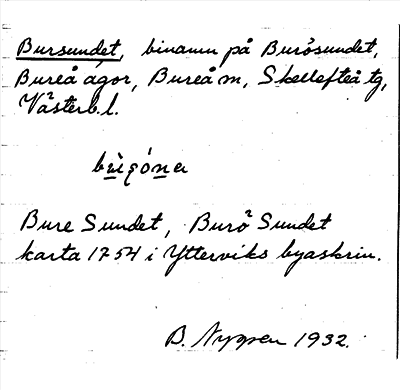 Bursundet, binamn på Burösundet,
Bureå ägor, Bureå m, Skellefteå tg,
Västerb. l.
Bure Sundet, Burö Sundet
karta 1754 i Ytterviks byaskrin.
B. Nygren 1932.